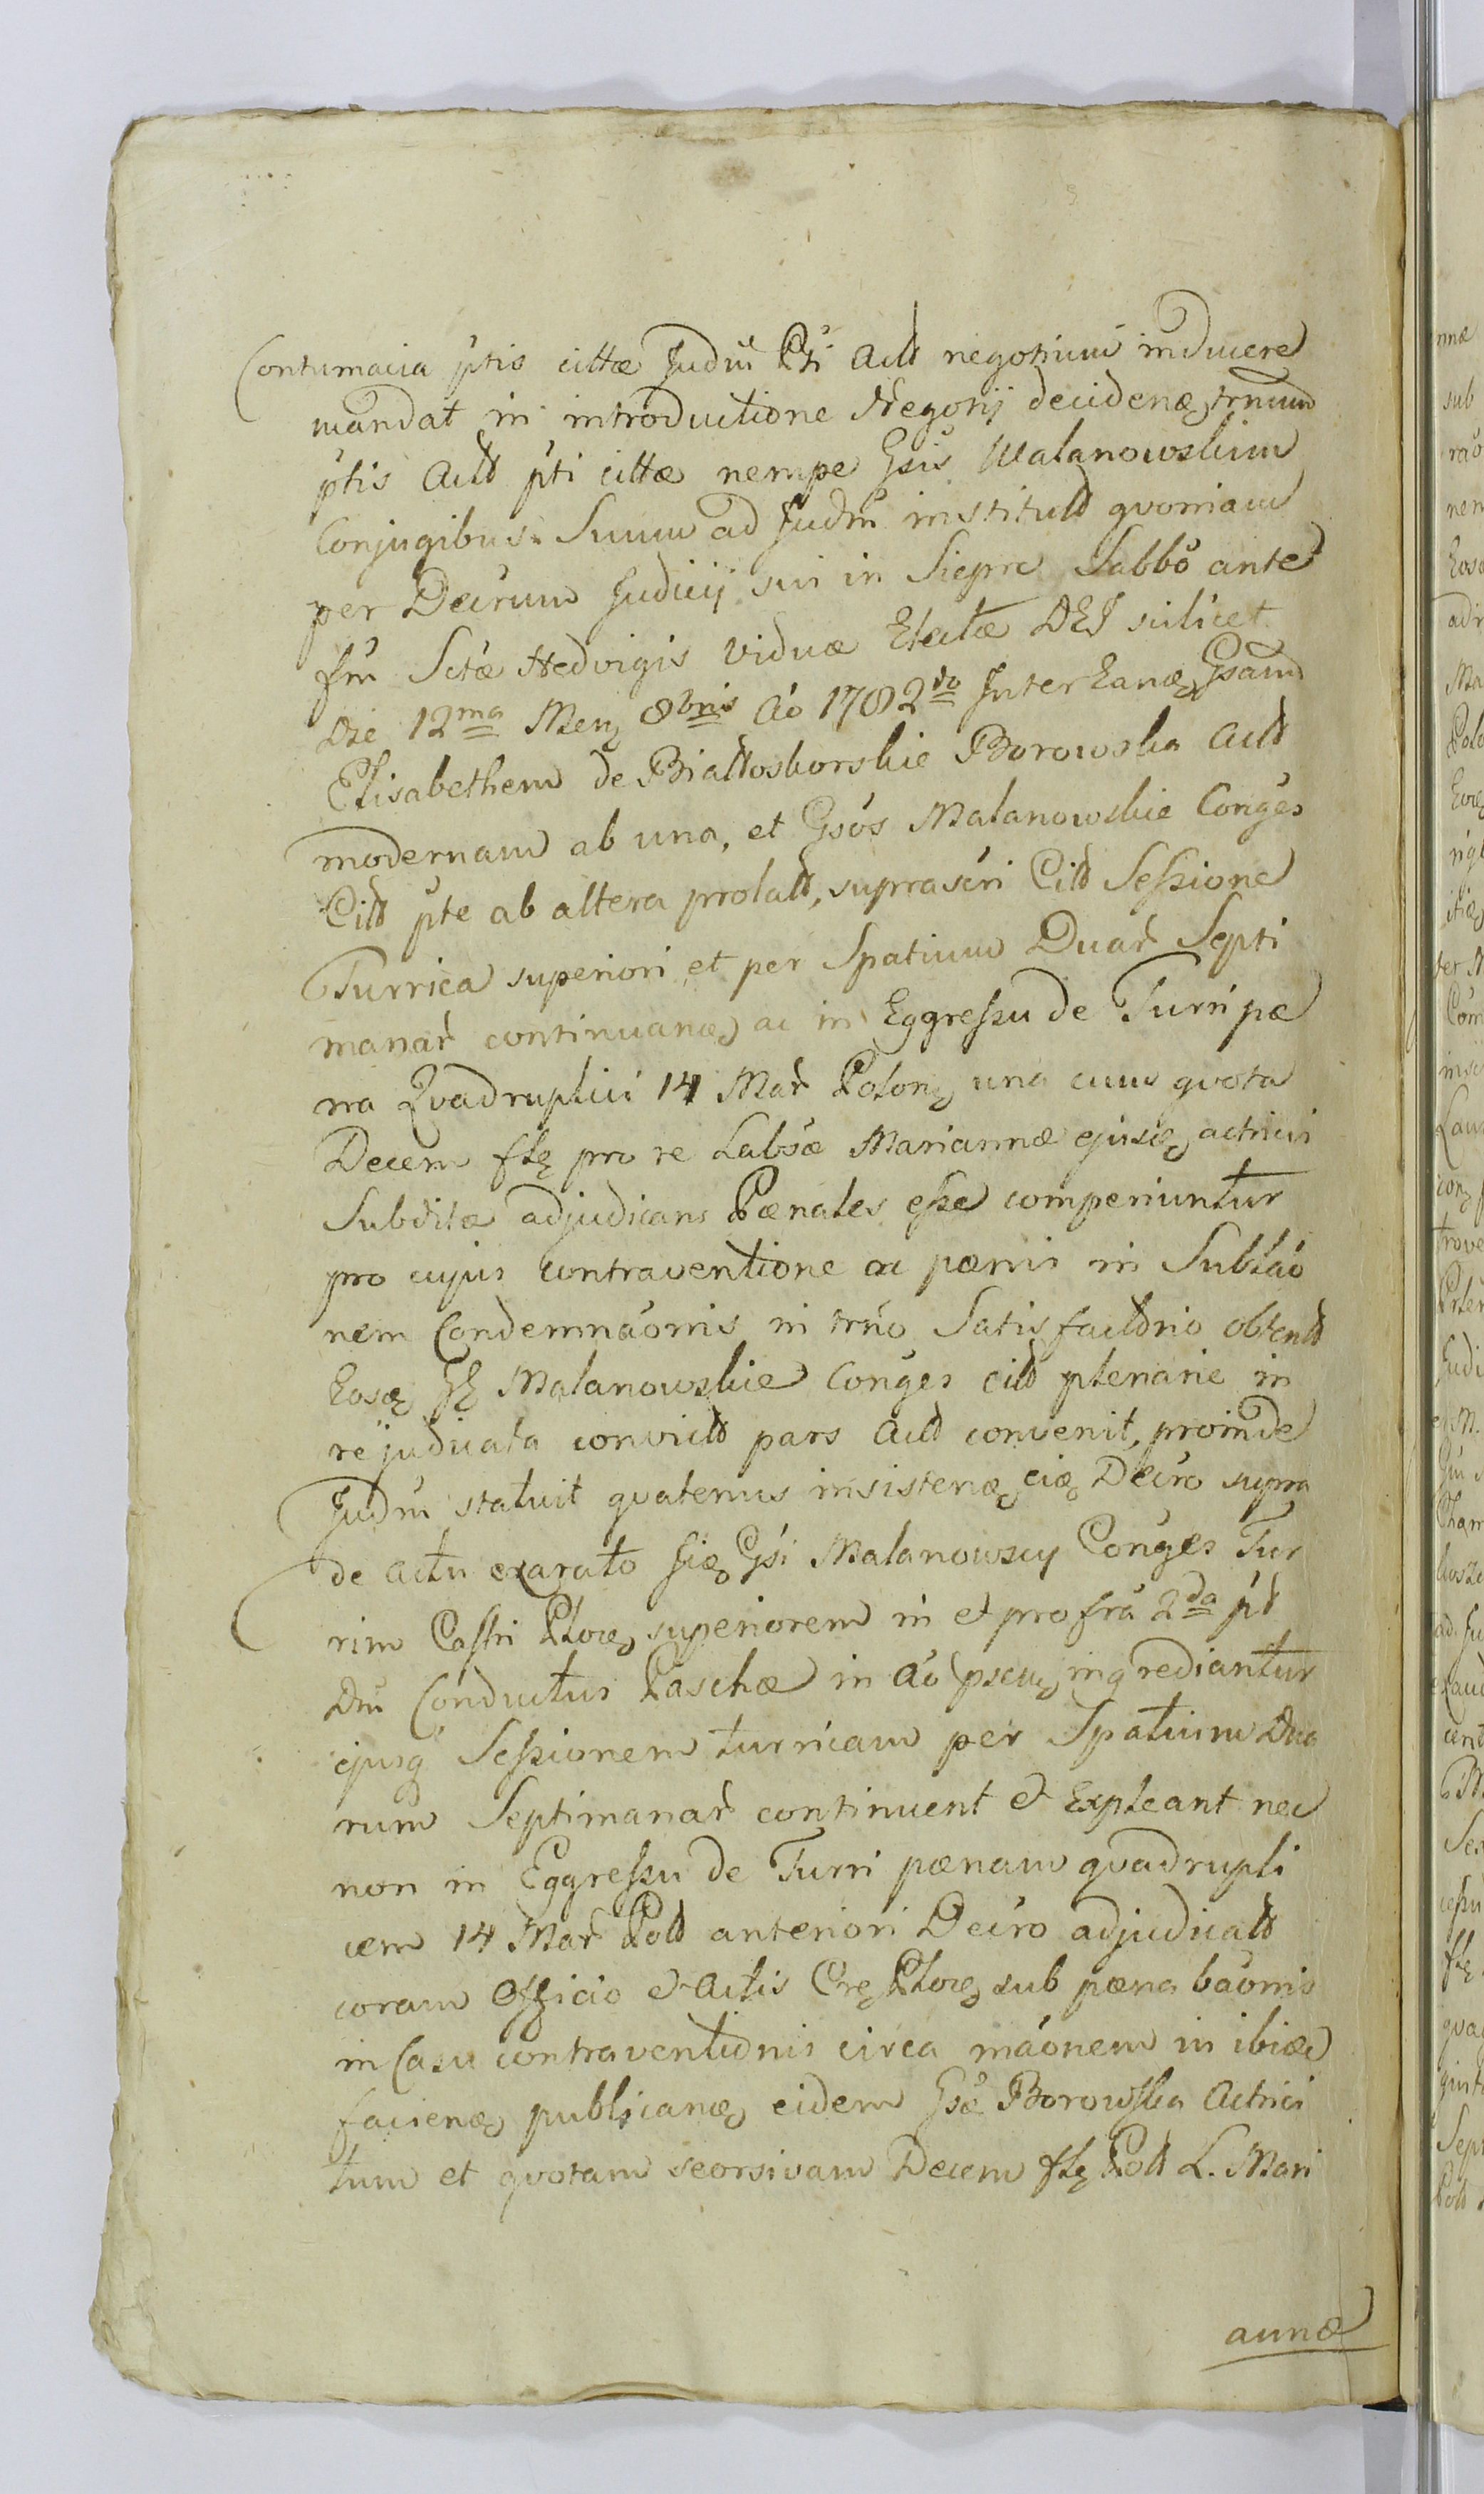 Contumacia ptis cittæ Judm Pti Actt negotium inducere
mandat in introductione Negotij decidenæ, trnum
ptis Actt pti cittæ nempe Gsis Malanowskim
Conjugibus. Suum ad Judm institutt qvoniam
per Decrum Judicij sui in Siepre Sabbo ante
fm Sctæ Hedvigis Viduæ Electæ DEI scilicet
Die 12ma Menz 8bris Ao 1782do Inter Eanæ, Gsam
Elisabethem de Biattoskorskie Borowska Actt
modernam ab una, et Gsos Malanowskie Conges
Citt pte ab altera prolatt, suprascri Citt Sessione
Turrica superiori et per Spatium Duar Septi
manar continuanæ, ac in Eggressu de Turri pæ
na Qvadruplici 14 Mar Polon, una cum qvota
Decem flz pro re Labsæ Mariannæ ejusæ, actrici
Subditæ adjudicans Pænales esse comperiuntur
pro cujus contraventione ac pænis in Sublao
nem Condemnaonis in trno Satisfacttrio obtentt
Eosæ GG Malanowskie Conges citt plenarie in
re judicata convictt pars Actt convenit, proinde
Judm statuit qvatenus insistenæ, eiæ, Decro supra
de actu exarato Jiæ, Gsi Malanowscy Conges Tur
rim Castri Ploce, superiorem in et pro fra 2da pt
Dm Conductus Paschæ in Ao pscu, ingrediantur
ejusq Sessionem turricam per Spatium Dua
rum Septimanar continuent et Expleant nec
non in Eggressu de Turri pænam qvadrupli
cem 14 Mar Poltt anteriori Decro adjudicatt
coram Officio et Actis Cre, Ploce, sub pæna baonis
in Casu contraventionis circa maonem in ibiæ
facienæ, publicanæ, eidem Gsæ Borowska Actrici
tum et qvotam seorsivam Decem flz Poltt L. Mari
annæ